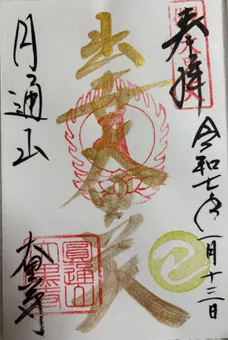 奉拝
令和七年一月十三日
出世大黒天
円通山
大黒寺
圓通山
大黒寺